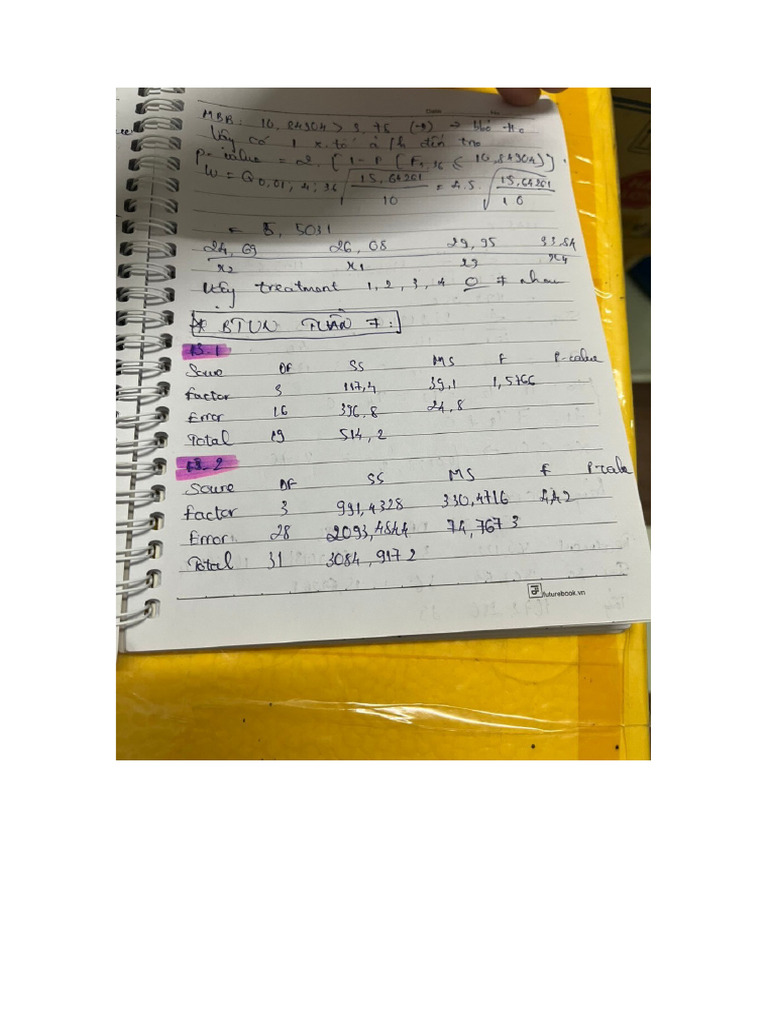 MBB: 10,84904 > 3,76 (→) ⇒ bbỏ H₀
Vậy có 1 x.tố ả/h đến tno
P-value = 2.[1-P(F3,36 < 10,84904)].
W = Q0,01; 4; 36 √(15,64261/10) = 4.5. √(15,64261/10)
= 5,5031
24,69 26,08 29,95 33,84
x2 x1 x3 x4
Vậy treatment 1, 2, 3, 4 0 ≠ nhau
* BTVN TUẦN 7:
13.1
Soure DF SS MS F P-value
Factor 3 117,4 39,1 1,5766
Error 16 396,8 24,8
Total 19 514,2
13.2
Soure DF SS MS F P-value
Factor 3 991,4328 330,4716 4,42
Error 28 2093,4844 74,7673
Total 31 3084,9172
futurebook.vn